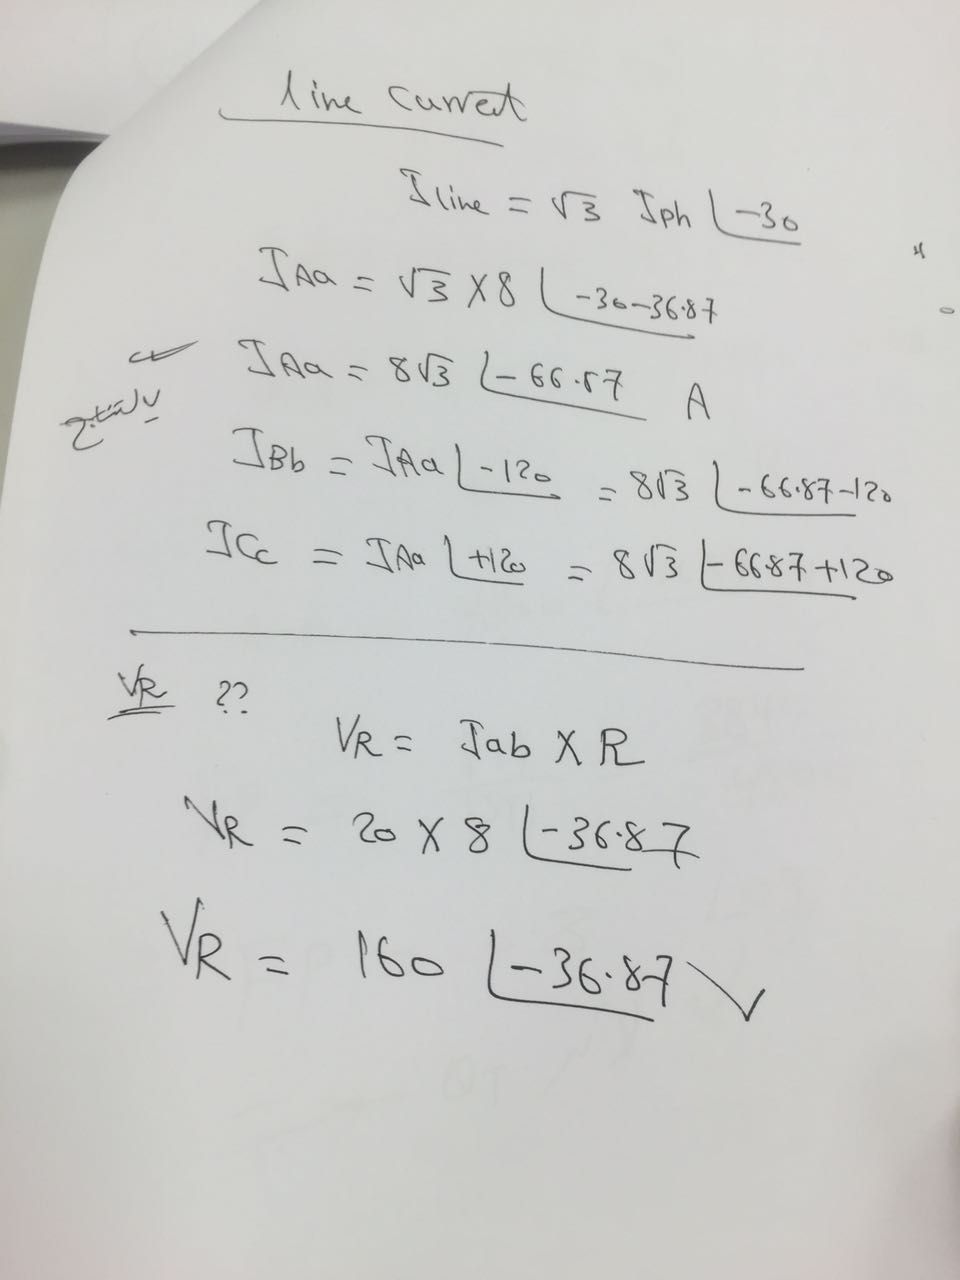 line current
Iline = √3 Iph ∠-30
IAa = √3 × 8 ∠-30-36.87
IAa = 8√3 ∠-66.87 A
بالتتابع
IBb = IAa ∠-120 = 8√3 ∠-66.87-120
ICc = IAa ∠+120 = 8√3 ∠-66.87+120
VR ??
VR = Iab × R
VR = 20 × 8 ∠-36.87
VR = 160 ∠-36.87 V